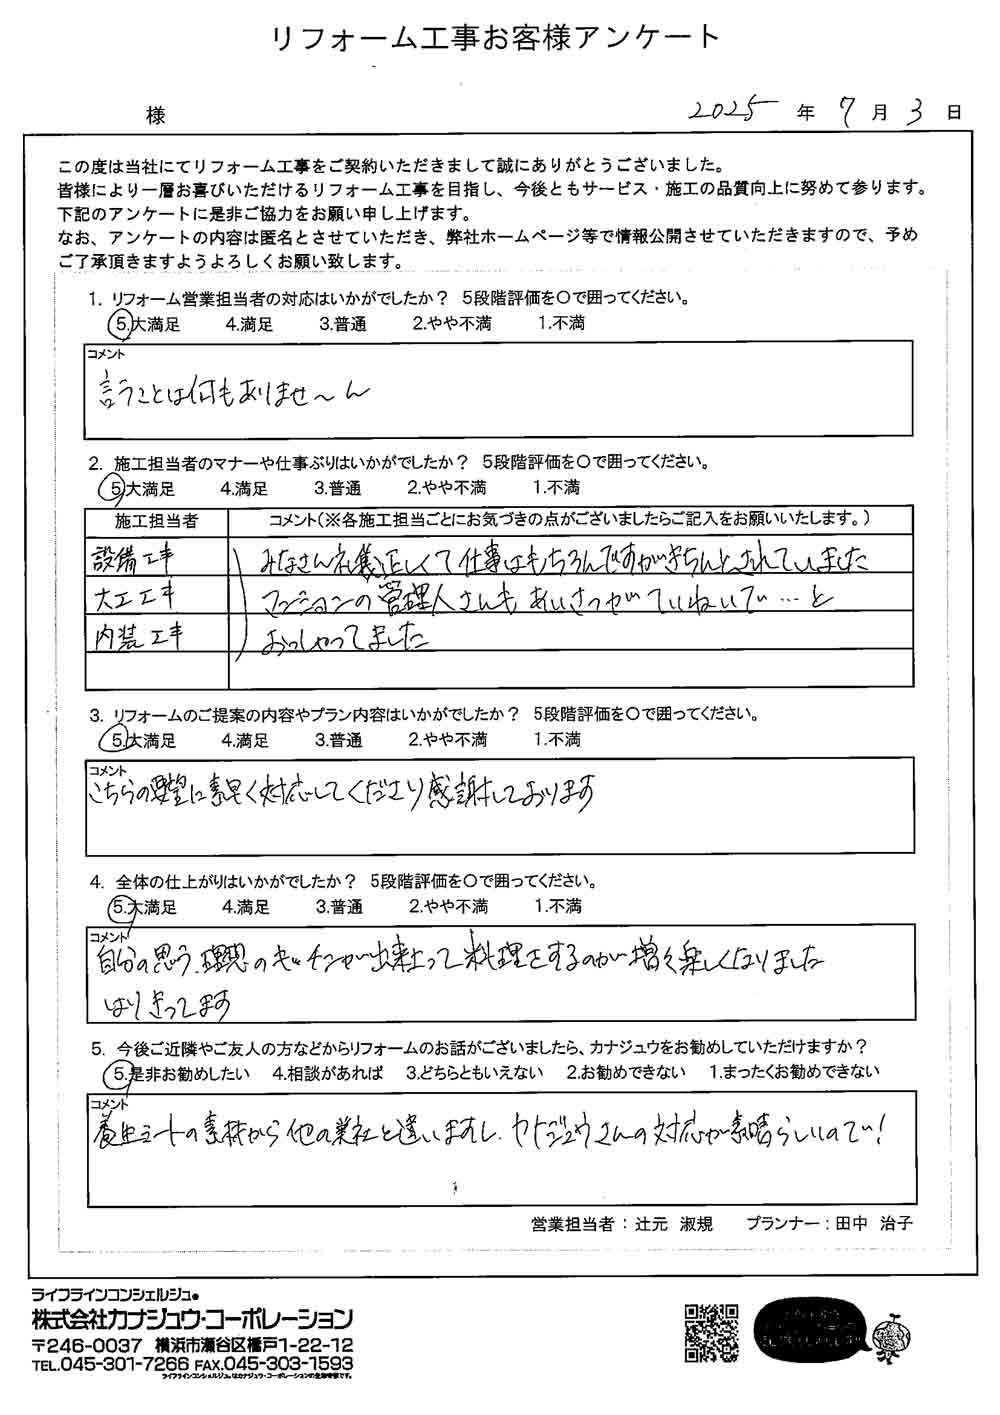 リフォーム工事お客様アンケート
様 2025 年 7 月 3 日
この度は当社にてリフォーム工事をご契約いただきまして誠にありがとうございました。
皆様により一層お喜びいただけるリフォーム工事を目指し、今後ともサービス・施工の品質向上に努めて参ります。
下記のアンケートに是非ご協力をお願い申し上げます。
なお、アンケートの内容は匿名とさせていただき、弊社ホームページ等で情報公開させていただきますので、予め
ご了承頂きますようよろしくお願い致します。
1. リフォーム営業担当者の対応はいかがでしたか? 5段階評価を〇で囲ってください。
5.大満足 4.満足 3.普通 2.やや不満 1.不満
コメント
言うことは何もありませ〜ん
2. 施工担当者のマナーや仕事ぶりはいかがでしたか? 5段階評価を〇で囲ってください。
5.大満足 4.満足 3.普通 2.やや不満 1.不満
施工担当者 コメント(※各施工担当ごとにお気づきの点がございましたらご記入をお願いいたします。)
設備工事 みなさん礼儀正しくて仕事はもちろんですがきちんとされていました
大工工事 マンションの管理人さんも あいさつがていねいで…と
内装工事 おっしゃってました
3. リフォームのご提案の内容やプラン内容はいかがでしたか? 5段階評価を〇で囲ってください。
5.大満足 4.満足 3.普通 2.やや不満 1.不満
コメント
こちらの要望に素早く対応してくださり感謝しております
4. 全体の仕上がりはいかがでしたか? 5段階評価を〇で囲ってください。
5.大満足 4.満足 3.普通 2.やや不満 1.不満
コメント
自分の思う、理想のキッチンが出来上って料理をするのが増々楽しくなりました
はりきってます
5. 今後ご近隣やご友人の方などからリフォームのお話がございましたら、カナジュウをお勧めしていただけますか?
5.是非お勧めしたい 4.相談があれば 3.どちらともいえない 2.お勧めできない 1.まったくお勧めできない
コメント
養生シートの素材から他の業社と違いますし、カナジュウさんの対応が素晴らしいので!
営業担当者:辻元 淑規 プランナー:田中 治子
ライフラインコンシェルジュ®
株式会社カナジュウ・コーポレーション
〒246-0037 横浜市瀬谷区橋戸1-22-12
TEL.045-301-7266 FAX.045-303-1593
ライフラインコンシェルジュ®はカナジュウ・コーポレーションの登録商標です。